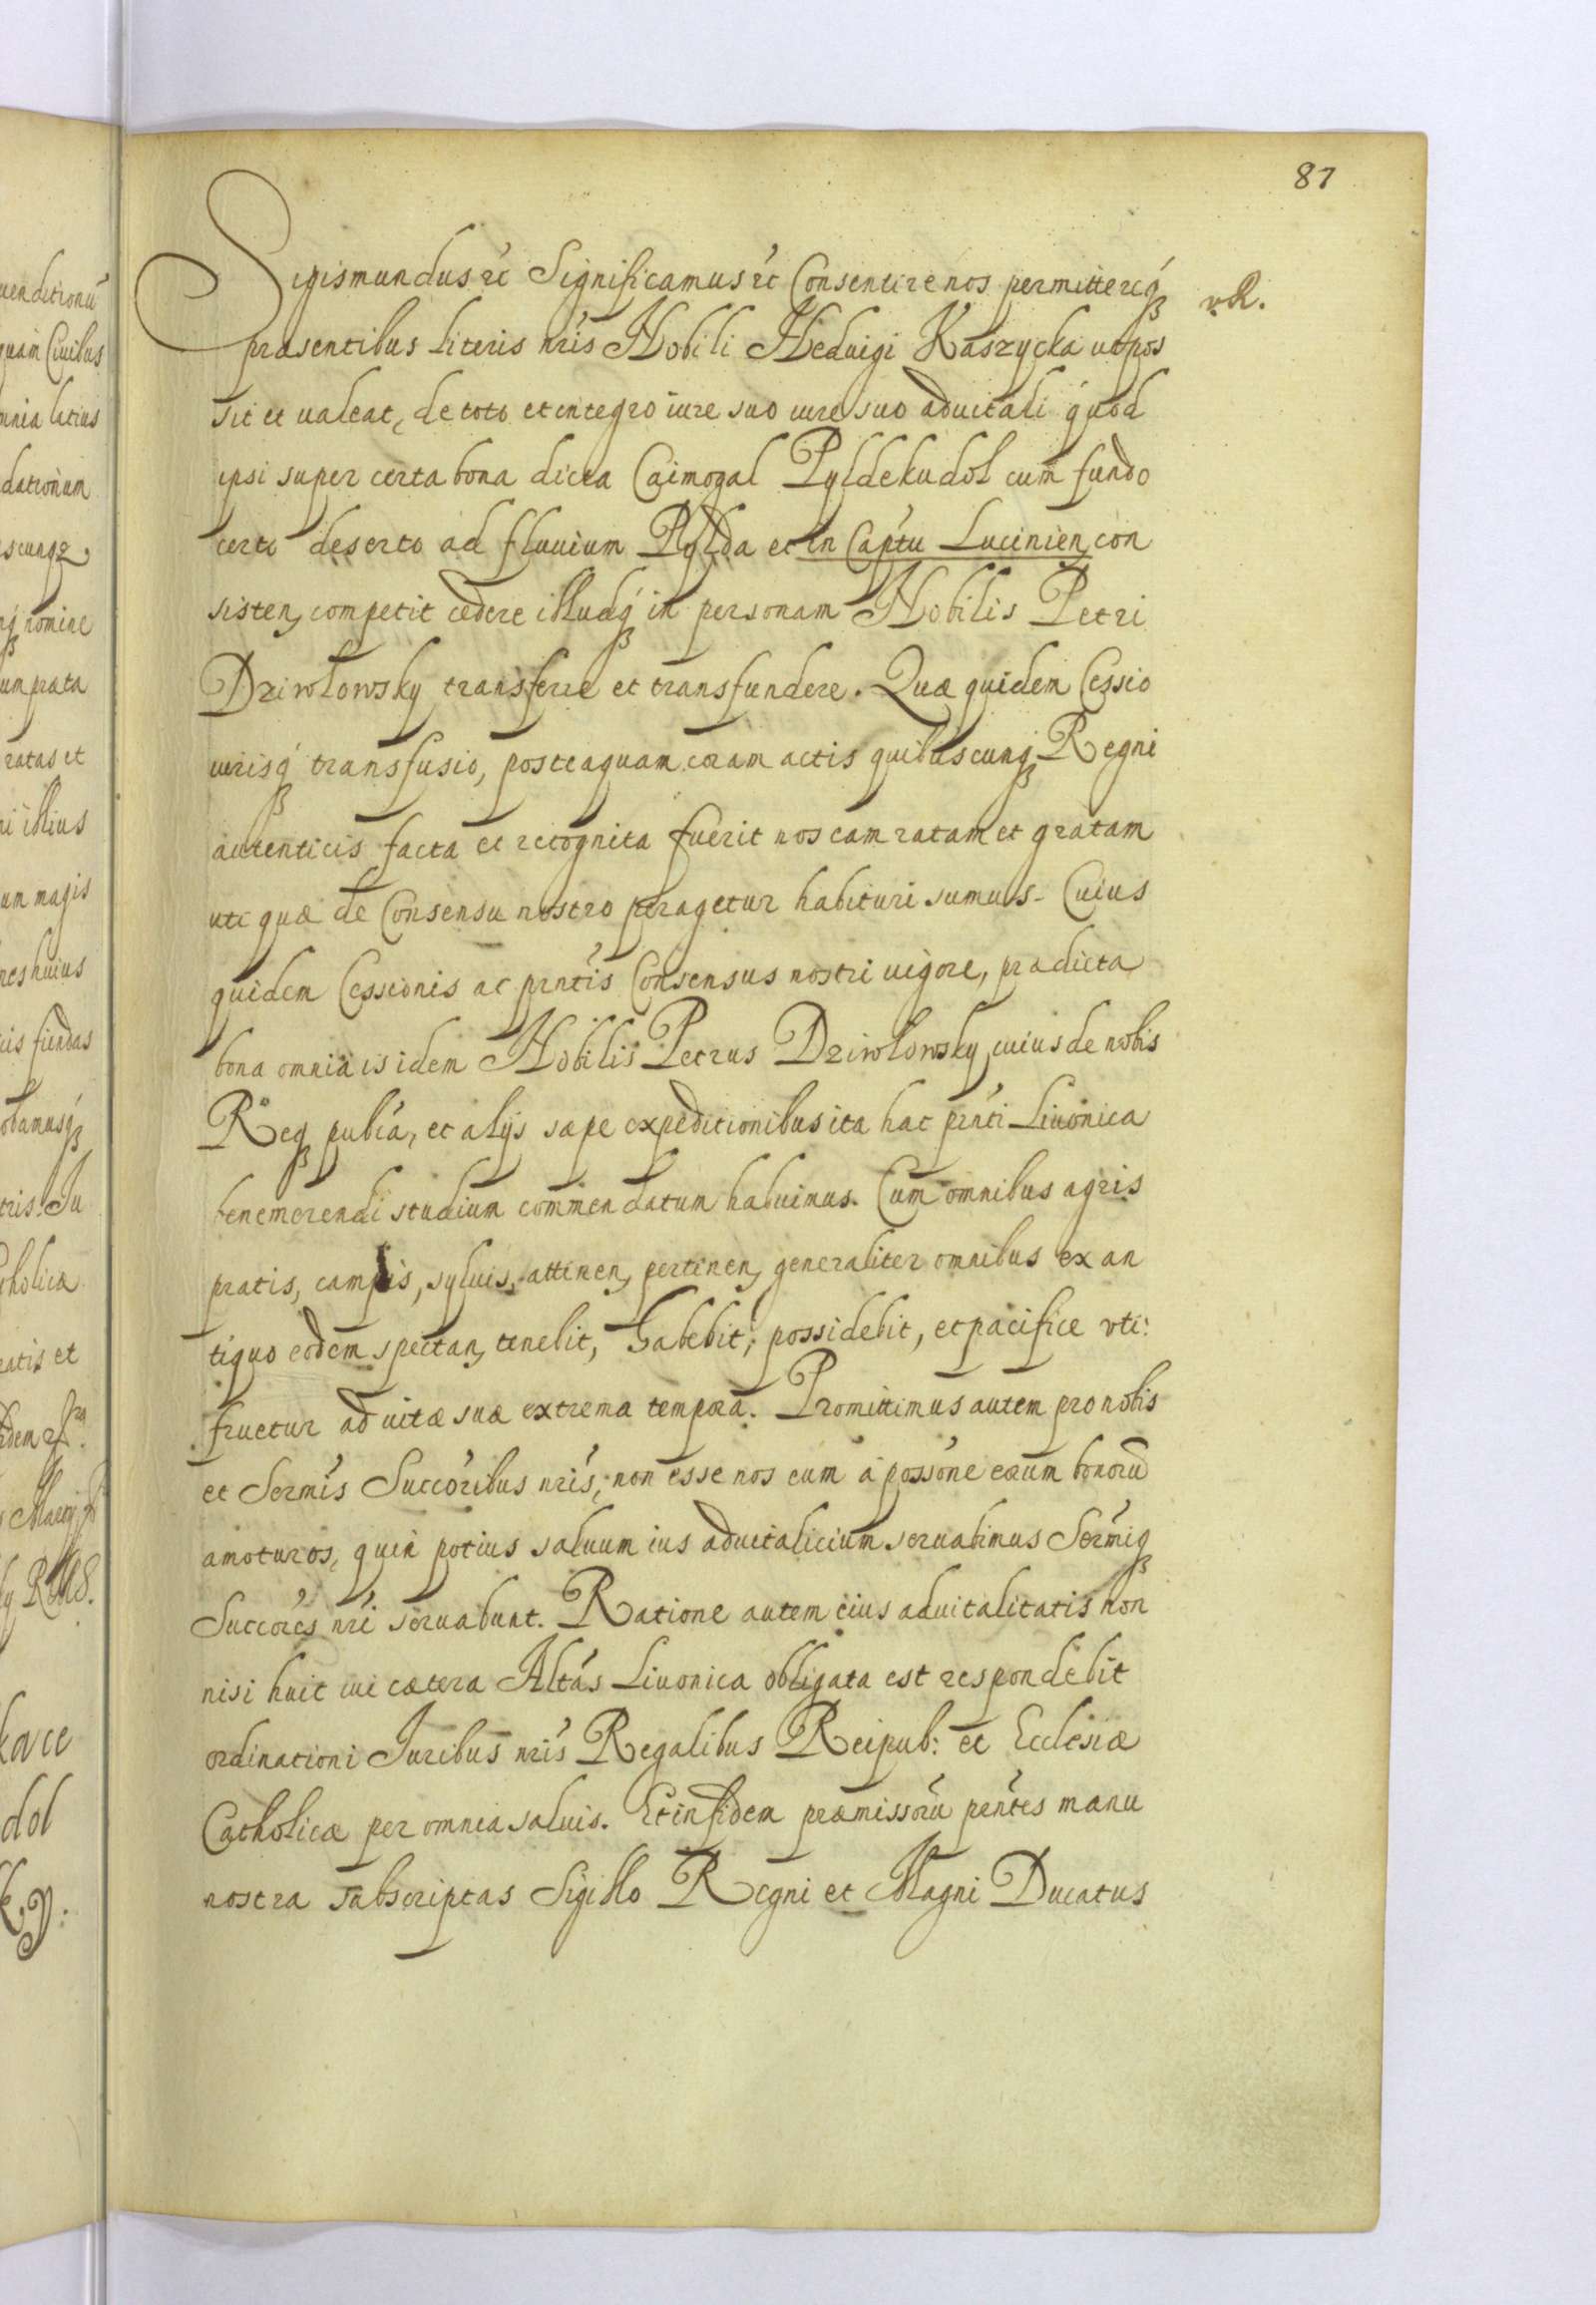 87
Sigismundus etc Significamus etc Consentire nos permittereq́
præsentibus literis nr̃is Nobili Heduigi Kaszycka ut pos
sit et ualeat, de toto et integro iure suo iure suo aduitali quod
ipsi super certa bona dicta Caimogal Pyldekudol cum fundo
certo deserto ad fluuium Pylda et in Captu Lucinien, con
sisten, competit cedere illudq́ in personam Nobilis Petri
Dziwlowsky transferre et transfundere. Quæ quidem Cessio
iurisq́ transfusio, posteaquam coram actis quibuscunq́ Regni
autenticis facta et recognita fuerit nos eam ratam et gratam
uti quæ de Consensu nostro peragetur habituri sumus. Cuius
quidem Cessionis ac prñtis Consensus nostri uigore, prædicta
bona omnia is idem Nobilis Petrus Dziwlowsky, cuius de nobis
Req́ pub́ca, et alijs sæpe expeditionibus ita hac prñti Liuonica
benemerendi studium commendatum habuimus. Cum omnibus agris
pratis, campis, syluis, attinen, pertinen, generaliter omnibus ex an
tiquo eodem spectan, tenebit, habebit, possidebit, et pacifice uti:
fruetur ad uitæ suæ extrema tempora. Promittimus autem pro nobis
et Sermis Succoribus nr̃is, non esse nos eum á possone eorum bonorũ
amoturos, quin potius saluum ius aduitalicium seruabimus Sermiq́
Succores nr̃i seruabunt. Ratione autem eius aduitalitatis non
nisi huic cui cætera Nbltas Liuonica obligata est respondebit
ordinationi Juribus nr̃is Regalibus Reipub: et Ecclesiæ
Catholicæ per omnia saluis. Et in fidem præmissorũ prñtes manu
nostra subscriptas Sigillo Regni et Magni Ducatus